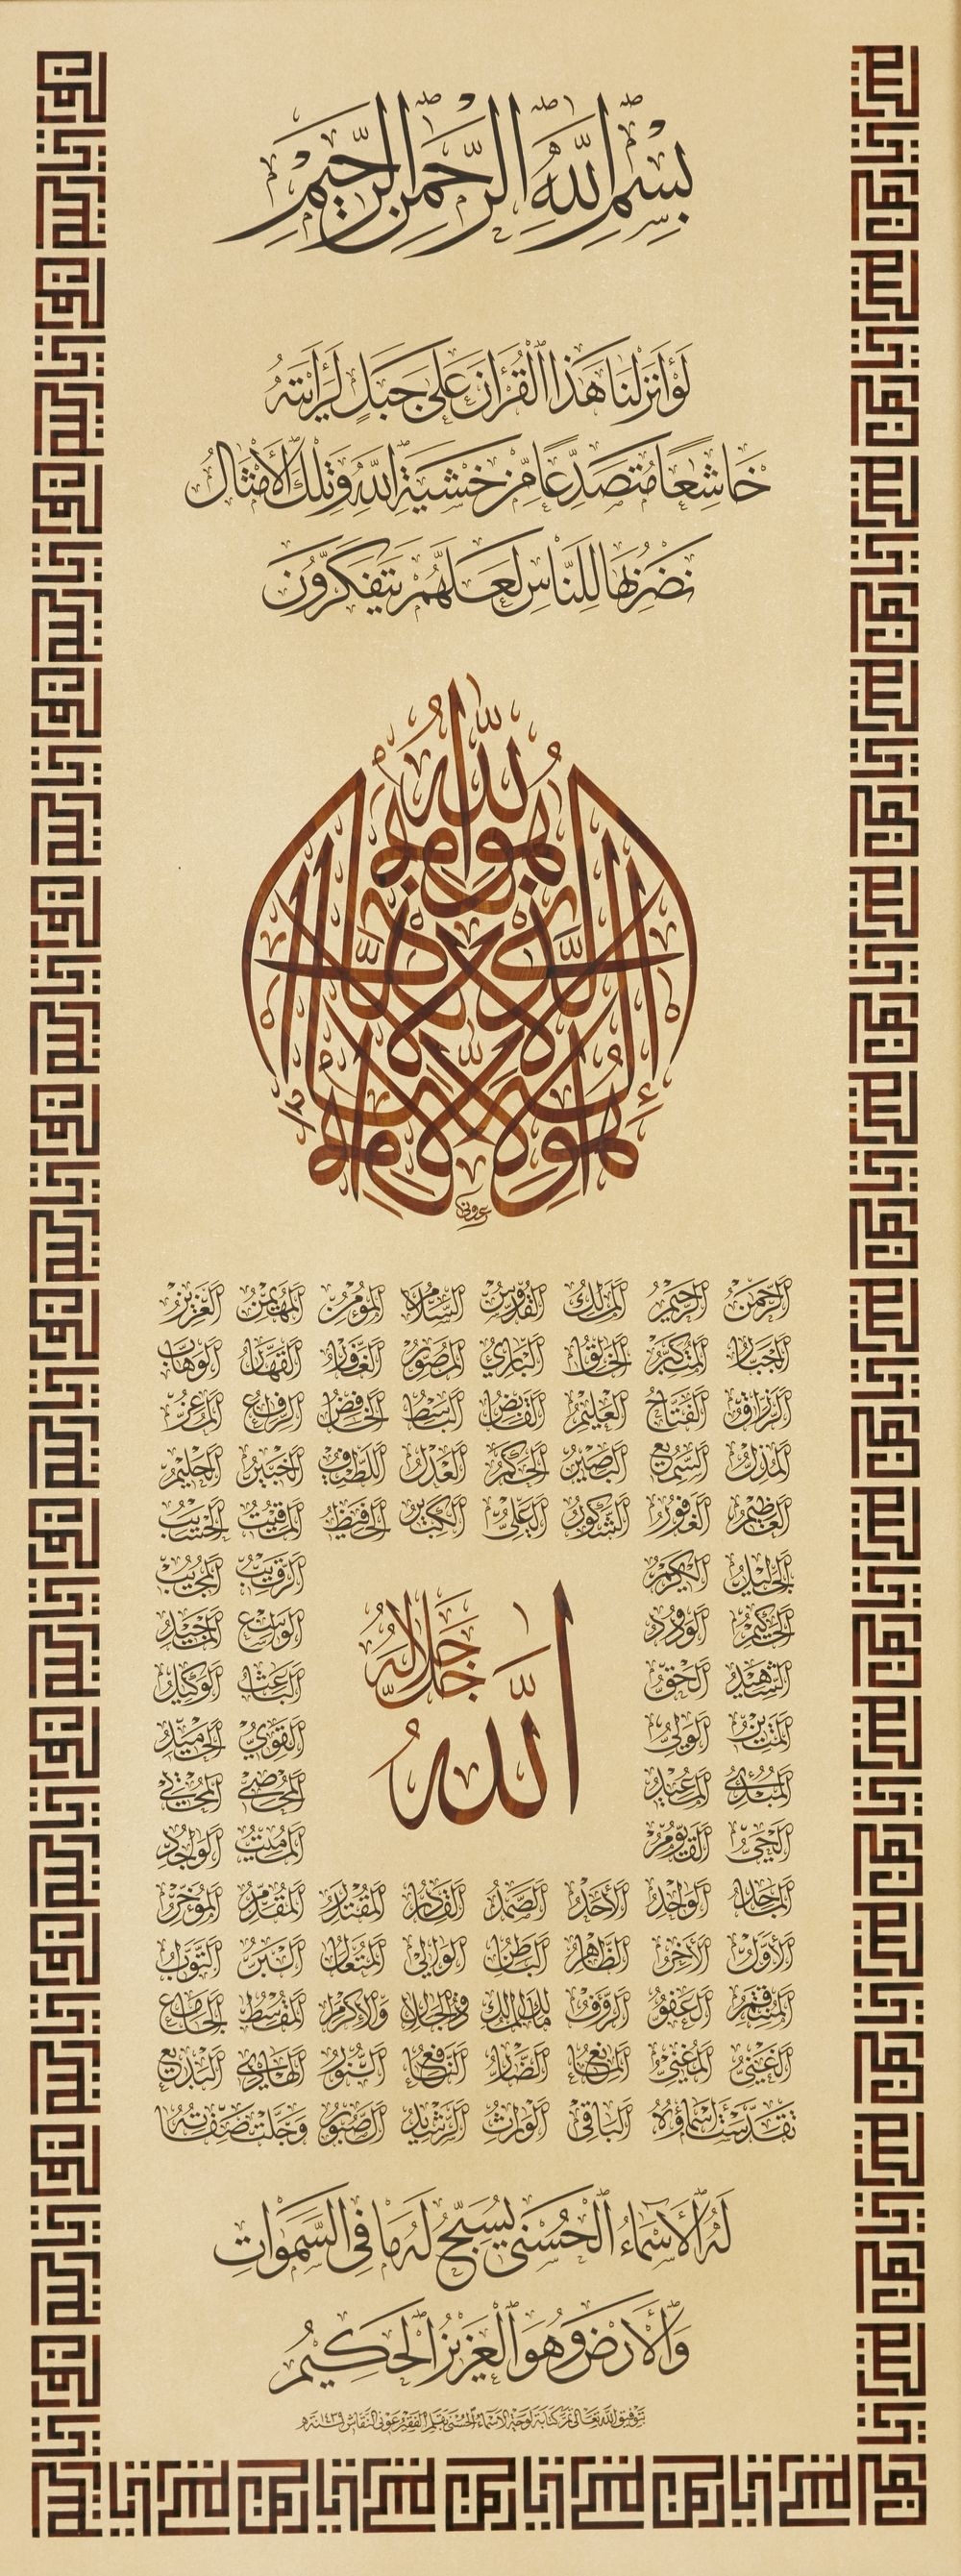 بِسْمِ اللَّهِ الرَّحْمَنِ الرَّحِيمِ
لَوْ أَنزَلْنَا هَذَا الْقُرْآنَ عَلَى جَبَلٍ لَرَأَيْتَهُ
خَاشِعًا مُتَصَدِّعًا مِنْ خَشْيَةِ اللَّهِ وَتِلْكَ الْأَمْثَالُ
نَضْرِبُهَا لِلنَّاسِ لَعَلَّهُمْ يَتَفَكَّرُونَ
هو الله الذي لا إله إلا هو
الرحمن الرحيم الملك القدوس السلام المؤمن المهيمن العزيز
الجبار المتكبر الخالق البارئ المصور الغفار القهار الوهاب
الرزاق الفتاح العليم القابض الباسط الخافض الرافع المعز
المذل السميع البصير الحكم العدل اللطيف الخبير الحليم
العظيم الغفور الشكور العلي الكبير الحفيظ المقيت الحسيب
الجليل الكريم الرقيب المجيب
الحكيم الودود الواسع المجيد
الشهيد الحق الباعث الوكيل
المتين الولي القوي الحميد
المبدئ المعيد المحصي المحيي
الحي القيوم المميت الواجد
الله جل جلاله
الماجد الواحد الأحد الصمد القادر المقتدر المقدم المؤخر
الأول الآخر الظاهر الباطن الوالي المتعال البر التواب
المنتقم العفو الرؤف مالك الملك ذو الجلال والإكرام المقسط الجامع
الغني المغني المانع الضار النافع النور الهادي البديع
تقدست أسماؤه الباقي الوارث الرشيد الصبور وجلت صفاته
لَهُ الْأَسْمَاءُ الْحُسْنَى يُسَبِّحُ لَهُ مَا فِي السَّمَوَاتِ
وَالْأَرْضِ وَهُوَ الْعَزِيزُ الْحَكِيمُ